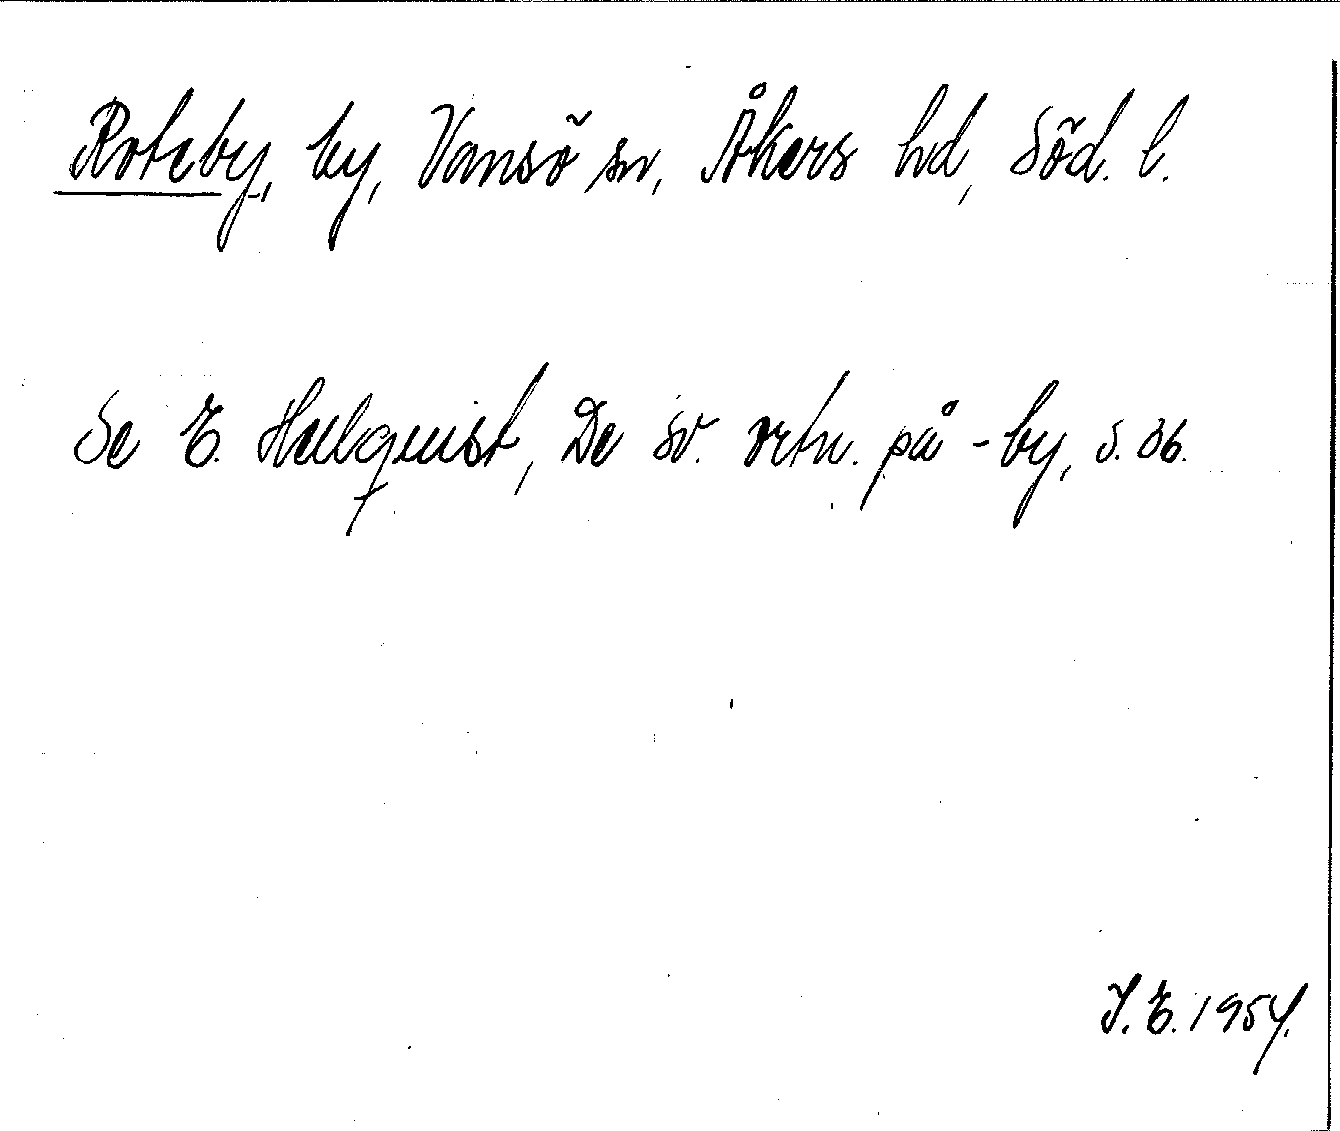 Roteby, by, Vansö sn, Åkers hd, Söd. l.
Se E. Hellquist, De sv. ortn. på -by, s. 36.
I. E. 1954.